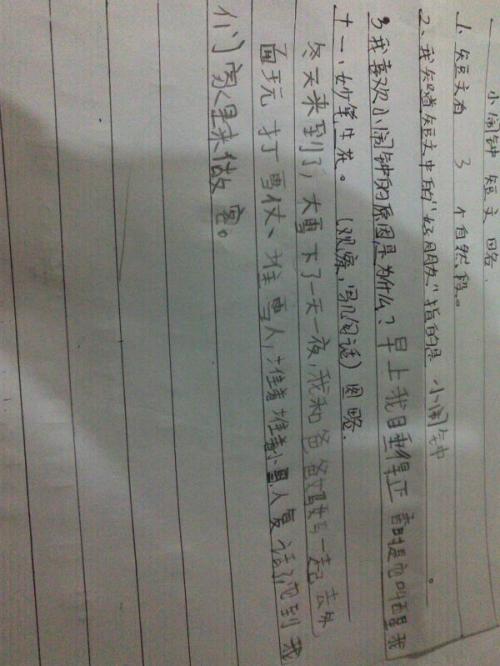 小闹钟 短文 图略
1、短文有 3 个自然段。
2、我知道短文中的"好朋友"指的是 小闹钟 。
3 我喜欢小闹钟的原因是为什么? 早上我睡得正香时是它叫醒我
十一、妙笔生花。(观察,写几句话)图略.
冬天来到了,大雪下了一天一夜,我和爸爸妈妈一起去外
面玩 打雪仗、堆雪人,堆着堆着小雪人复活了到我
们家里来做客。